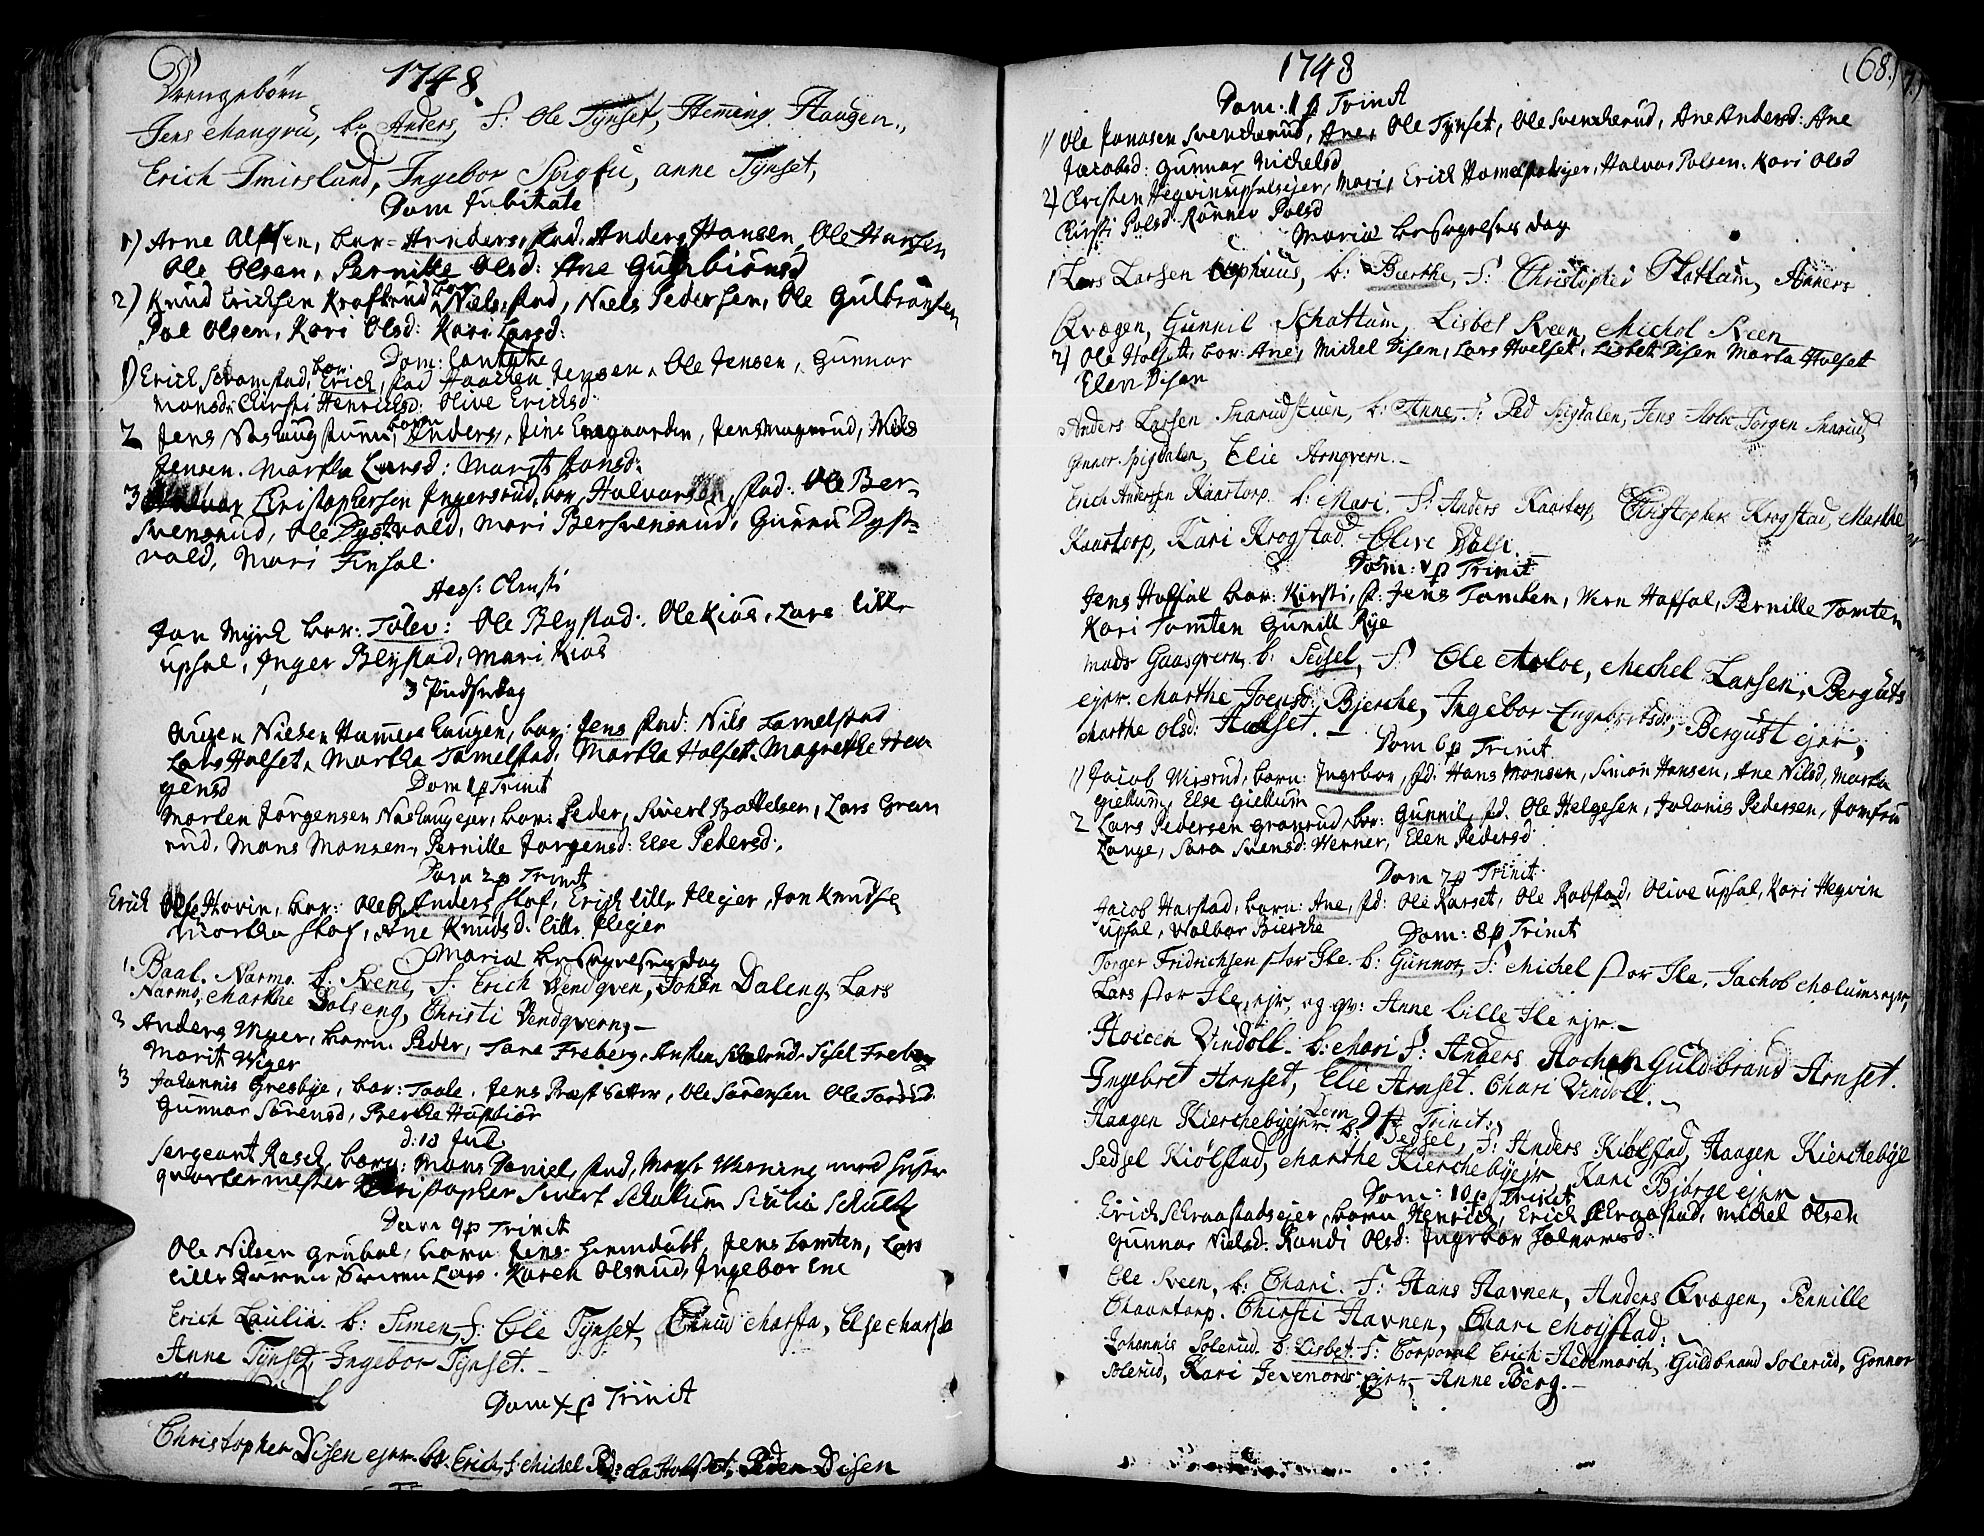 Drengebörn
1748.
Jens Mangrú, b: Anders, f: Ole Tÿnset, Heming Haugen,
Erich Imirslund, Ingebor, anne Tÿnset,
Dom Jubilate
1) Arne Olsen, bar= Anders, fad. Anders Hansen, Ole Hansen
Ole Olsen, Pernille Olsd: Ane Gulbiönsd
2) Knud Ericksen Kraftrud bar Niels, fad, Niels Pedersen, Ole Gulbransen
Pol Olsen, Kari Olsd: Kari Larsd:
Dom: Cantate
1) Erich Skramstad, bar: Erich, fad Haachen Jensen, Ole Jensen, Gunnar
Monsd: Kirsti Henrichsd: Olive Ericksd:
2 Jens Nashaug stuen, barn Anders, Jens Engaarden, Jens Magnrud, Niels
Jensen. Martha Larsd: Margt Jansd:
3 Christophersen Ingersrud, bar, Halvor, fad: Ole Ber-
svensrud, Ole Dystvold, Mari Bersvensrud, Gunnu Dyst-
vold, Mari Finsal.
Asc: Christi
Jon Myhr bar: Tolev: Ole Blystad. Ole Kiös, Lars lille
upsal, Inger Blystad, Mari Kiös
3 Pindsedag
Nielsen Hammer haugen, bar: Jens fad: Nils Tomelstad
Lars Holset, Martha Tomelstad. Martha Holset. Magrethe Hau
gensd
Dom 1 p Trinit
Morten Jörgensen Nashaugejer, bar: Peder, Sivert Battelsen, Lars Gran
rud, Mons Monsen, Pernille Jorgensd: Else Pedersd.
Dom 2 p Trinit
Erich Hovin, bar: Ole Anders Hof, Erich lille Ilejer, Jon Knudsen
Martha Hof, Ane Knudsd. lille Ilejer
Mariæ besögelses dag
1. Paal Narmo. b: Svend, f: Erich Vendqvern, Johan Daleng, Lars
Narmo, Marthe Dolseng, Christi Vendqvern, —
2 Anders Myer, barn. Peder, Tore Freberg, Sisel Freberg
Marit Wiger
3 Johannis Gresbye, bar: Paale. Jens Præst Sætter, Ole Sörensen Ole
Gunnor Sörensd, Berthe
d: 13 Jul
Sergeant Rasch, barn: Mons Daniel, fad, Monsr Werning med hustr
qvartermester Christopher Sivert Schultz
Dom 9 p Trinit
Ole Nilsen grúbal, barn Jens. Jens Tomten, Lars
lille Karen Olsrud, Ingebor Ene
Erich Laulin. b: Simen, f: Ole Tÿnset, Knud Harsta, Else Harsta
Anne Tÿnset, Ingebor Tÿnset. —
Dom X p Trinit
Christopher Disen ejer. b: Erich, f: Michel Ped: Holset, Peder Disen
1748
68.
Dom: 1 p Trinit
1) Ole Jonasen Svenkerud, Ane, Ole Tÿnset, Ole Svenkerud, Ane Andersd: Ane
Jacobsd: Gunnar Michelsd
2) Christen Hegvin upsalsejer, Mari, Erich Homelstadejer, Halvor Polsen. Kari Olsd
Kirsti Polsd. Rönnev Polsd
Mariæ besögelses dag
1 Lars Larsen Ophuus, b: Berthe, f: Christopher Skattum, Anners
Qvægen, Gunnil Schattum, Lisbet Sveen, Michol Sveen
2) Ole Holset, bar: Ane, Michel Disen, Lars Holset, Lisbeth Disen Marta Holset
Elen Disen
Anders Larsen Skarudstuen, b: Anne, f: Ped Spigdalen, Jens Torgen Skarud,
Gunnor Spigdalen, Elie Arnqvern. —
Erich Andersen Kaartorp. b: Mari. f: Anders Kaartorp, Christopher Krogstad, Marthe
Kaartorp, Kari Krogstad, Olive Dalse. —
Dom: V p Trinit
Jens Hofsal bar: Kirsti, f: Jens Tomten, Wern Hofsal, Pernille Tomten
Kari Tomten Gunill Rye
Mads Gaasqvern, b: Sedsel, f: Ole Moloe, Mechel Larsen, Berguts
ejer. Marthe Joensd: Bjerche, Ingebor Engebretsd, Bergust ejer,
Marthe Olsd: Holset. —
Dom 6 p Trinit
1) Jacob Wirsrud, barn: Ingebor, fd: Hans Monsen, Simon Hansen, Ane Nilsd, Martha
Giellum, Else Giellum
2 Lars Pedersen Granrud, bar: Gunnil, fd. Ole Helgesen, Johanis Pedersen, Jomfru
Lange, Sara Svensd: Werner, Elen Pedersd.
Dom 7 p Trinit.
Jacob Harstad, barn: Ane, fd: Ole Karset, Ole Robstad, Olive upsal, Kari Hegvin
upsal, Walbor Bierche
Dom: 8 p Trinit
Torger Fridrichsen stor Ile. b: Gunnor, f: Michel stor Ile, Jachob Mælumsejer,
Lars stor Ile, ejer, og qv: Anne Lille Ile ejer. —
Haicen Vindoll. b: Mari f: Anders Guldbrand Arnset.
Ingebret Arnset, Elie Arnset. Chari Vindoll. —
Dom 9 p Trinit:
Haagen Kierchebyejer. b: Sedsel, f: Anders Kiölstad, Haagen Kierchebÿe
Sedsel Kiölstad, Marthe Kierchebyejer, Kari Bjørge ejer
Dom: 10 p Trinit
Erich Schraastadsejer, barn Henrich, Erich Schraastad, Michel Olsen
Gunnor Nielsd: Randi Olsd: Ingebor Halvorsd:
Ole Sveen, b: Chari. f: Hans Havnen, Anders Qvægen, Pernille
Chaartorp. Chirsti Havnen, Chari Moÿstad.
Johannis Solerud. b: Lisbet. f: Corporal Erich Hedemarch, Guldbrand Solerud, Gonnor
Solerud, Kari ejer, Anne Berg. —